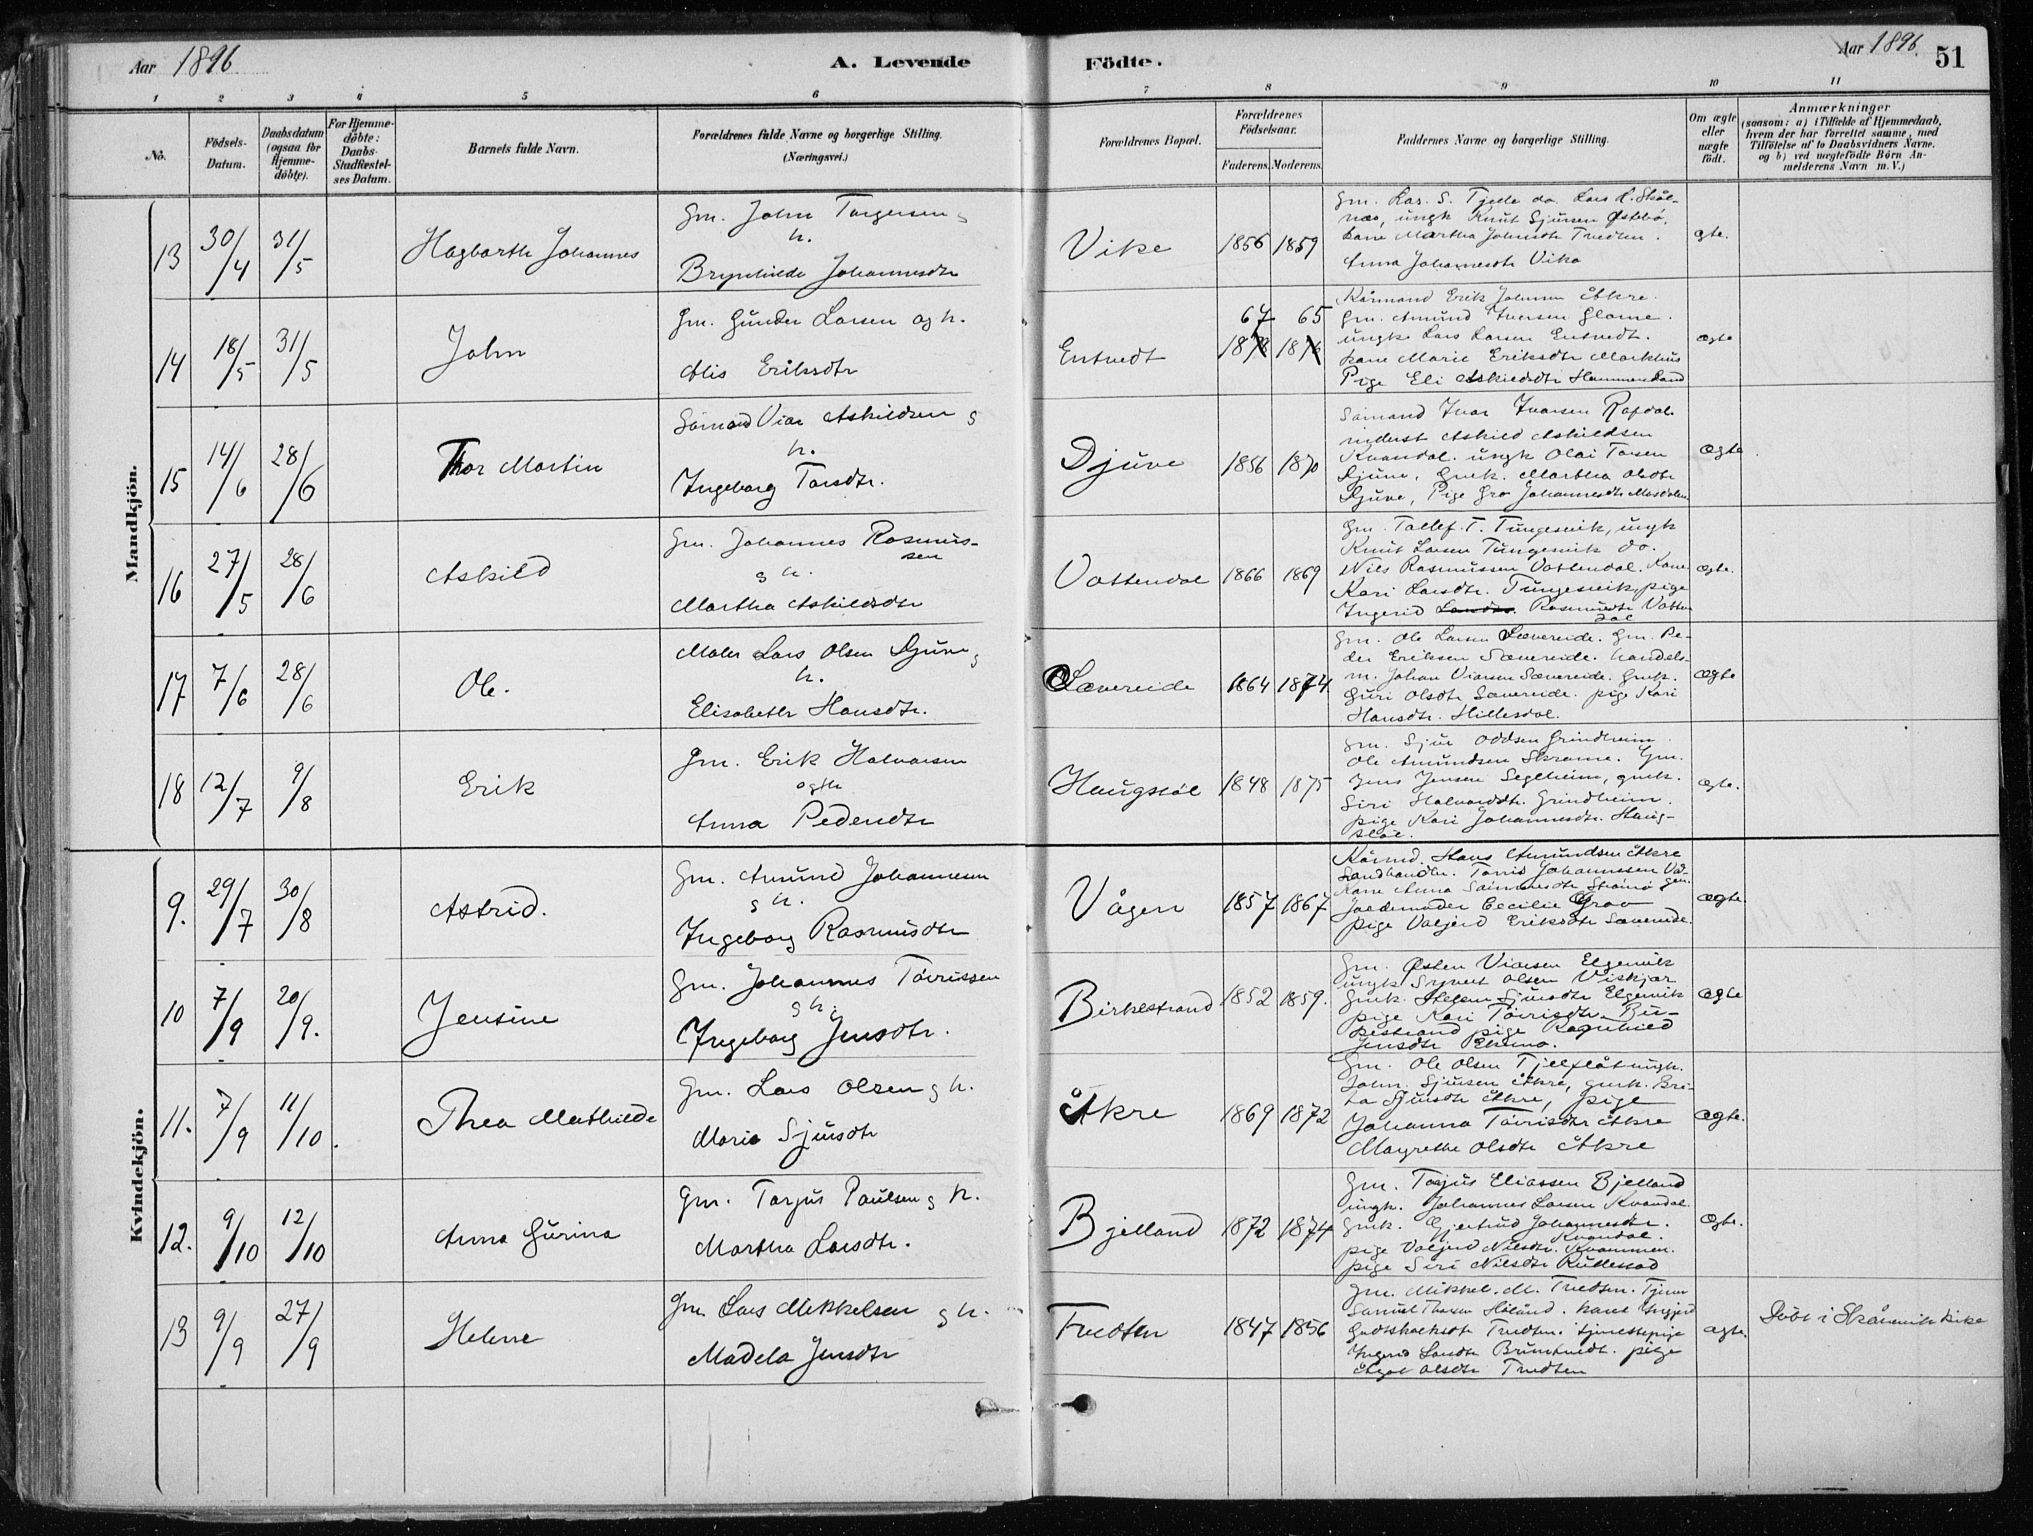 Aar 1896
A. Levende
Födte.
Aar 1896.
51
1 2 3 4 5 6 7 8 9 10 11
No.
Födsels-Datum.
Daabsdatum (ogsaa for Hjemme-döbte).
For Hjemme-döbte: Daabs-Stadfæstel-ses Datum.
Barnets fulde Navn.
Forældrenes fulde Navne og borgerlige Stilling.
(Næringsvei.)
Forældrenes Bopæl.
Forældrenes Födselsaar.
Faderens. Moderens.
Faddernes Navne og borgerlige Stilling.
Om ægte eller uægte födt.
Anmærkninger
(saasom: a) i Tilfælde af Hjemmedaab,
hvem der har forrettet samme, med
Tilföielse af to Daabsvidners Navne.
og b) ved uægtefödte Börn An-
melderens Navn m. V.)
Mandkjön.
13 30/4 31/5 Hagbarth Johannes
Gm. John Torgersen g
h.
Brynhilde Johannesdtr
Vike 1856 1859
Gm. Lar. S. Tjelle do. Lars L. Skål-
nes, ungk Knut Sjursen Østebø,
kone Martha Johnsdtr Tvedten.
Anna Johannesdtr Vika
ægte.
14 18/5 31/5 John
Gm. Gunder Larsen og h.
Alis Eriksdtr
Entvedt 67 65
Kårmand Erik Johnsen Åkre.
Gm. Amund Iversen Glame.
ungk Lars Larsen Entvedt.
kone Marie Eriksdtr Markhus
Pige Eli Askildsdtr Hammersland
ægte
15 14/6 28/6 Thor Martin
Sømand Viar Askildsen g
h.
Ingeborg Torsdtr.
Djuve 1856 1870
Sømand Ivar Ivarsen Rafdal
inderst Askild Askildsen
Kvandal. ungk Olai Torsen
Djuve, Gmk. Martha Olsdtr
Djuve, Pige Gro Johannesdtr Mosdalen
ægte.
16 27/5 28/6 Askild
Gm. Johannes Rasmus-
sen
g h.
Martha Askildsdtr
Vattendal 1866 1869
Gm. Tollef. T. Tungesvik, ungk
Knut Larsen Tungesvik do.
Nils Rasmussen Vattendal. Kone
Kari Larsdtr. Tungesvik, pige
Ingerid Rasmusdtr Vatten
dal
ægte.
17 7/6 28/6 Ole.
Maler Lars Olsen Djuve g
h.
Elisabeth Hansdtr.
Sævereide 1864 1874.
Gm. Ole Larsen Sævereide. Gm. Pe-
der Eriksen Sævereide. handels-
m. Johan Viarsen Sævereide. Gmk.
Guri Olsdtr Sævereide. pige Kari
Hansdtr. Hillesdal.
ægte
18 12/7 9/8 Erik
Gm. Erik Halvorsen
og h
Anna Pedersdtr
Haugsløl 1848 1875
Gm. Sjur Oddsen Grindheim.
Ole Amundsen Skrame. Gm.
Jens Jensen Seglheim, gmk.
Siri Halvardsdtr. Grindheim.
pige Kari Johannesdtr. Haug-
sløl.
ægte.
Kvindekjön.
9. 29/7 30/8 Astrid.
Gm. Amund Johannesen
g h.
Ingeborg Rasmusdtr
Vågen 1857 1867
Kårmd. Hans Amundsen Åkre
Landhandler. Tørris Johannesen Vå-
gen.
Kone Anna Sømmesdtr Strømø
Jordemoder Cecilie Grov
pige Valgjerd Eriksdtr Sævereide.
ægte.
10 7/9 20/9. Jensine
Gm. Johannes Tørrissen
g h.
Ingeborg Jensdtr.
Birkestrand 1852 1859.
Gm. Østen Viarsen Elgervik
ungk Syvert Olsen Viskjær
Gmk. Helga Sjursdtr Elgervik
pige Kari Tørrisdtr. Bir-
kestrand pige Ragnhild
Jensdtr
ægte
11. 7/9 11/10. Thea Mathilde
Gm. Lars Olsen g h.
Marie Sjursdtr
Åkre 1869 1872
Gm. Ole Olsen Tjelflåt ungk.
John. Sjursen Åkre, gmk. Bri-
ta Sjursdtr Åkre, pige
Johanna Tørrisdtr Åkre
Magrethe Olsdtr Åkre
ægte.
12. 9/10 12/10 Anna Gurina
Gm. Torjus Paulsen g h.
Martha Larsdtr.
Bjelland 1872 1874
Gm. Torjus Eliassen Bjelland
ungk. Johannes Larsen Kvandal
Gmk. Gjertrud Johannesdtr.
Kvandal.
pige Valgjerd Nilsdtr. Kvammen.
pige Siri Nilsdtr Rullestad
ægte.
13 9/9 27/9 Helene
Gm Lars Mikkelsen g h.
Madela Jensdtr
Tvedten 1847 1856
Gm. Mikkel. M. Tvedten. Tjener
Samuel Høland. kone Ingjerd
Gudtskalksdtr Tvedten. tjenestepige
Ingerid Larsdtr Bruntvedt. pige
Olsdtr Tvedten
ægte.
Døbt i Skånevik kirke